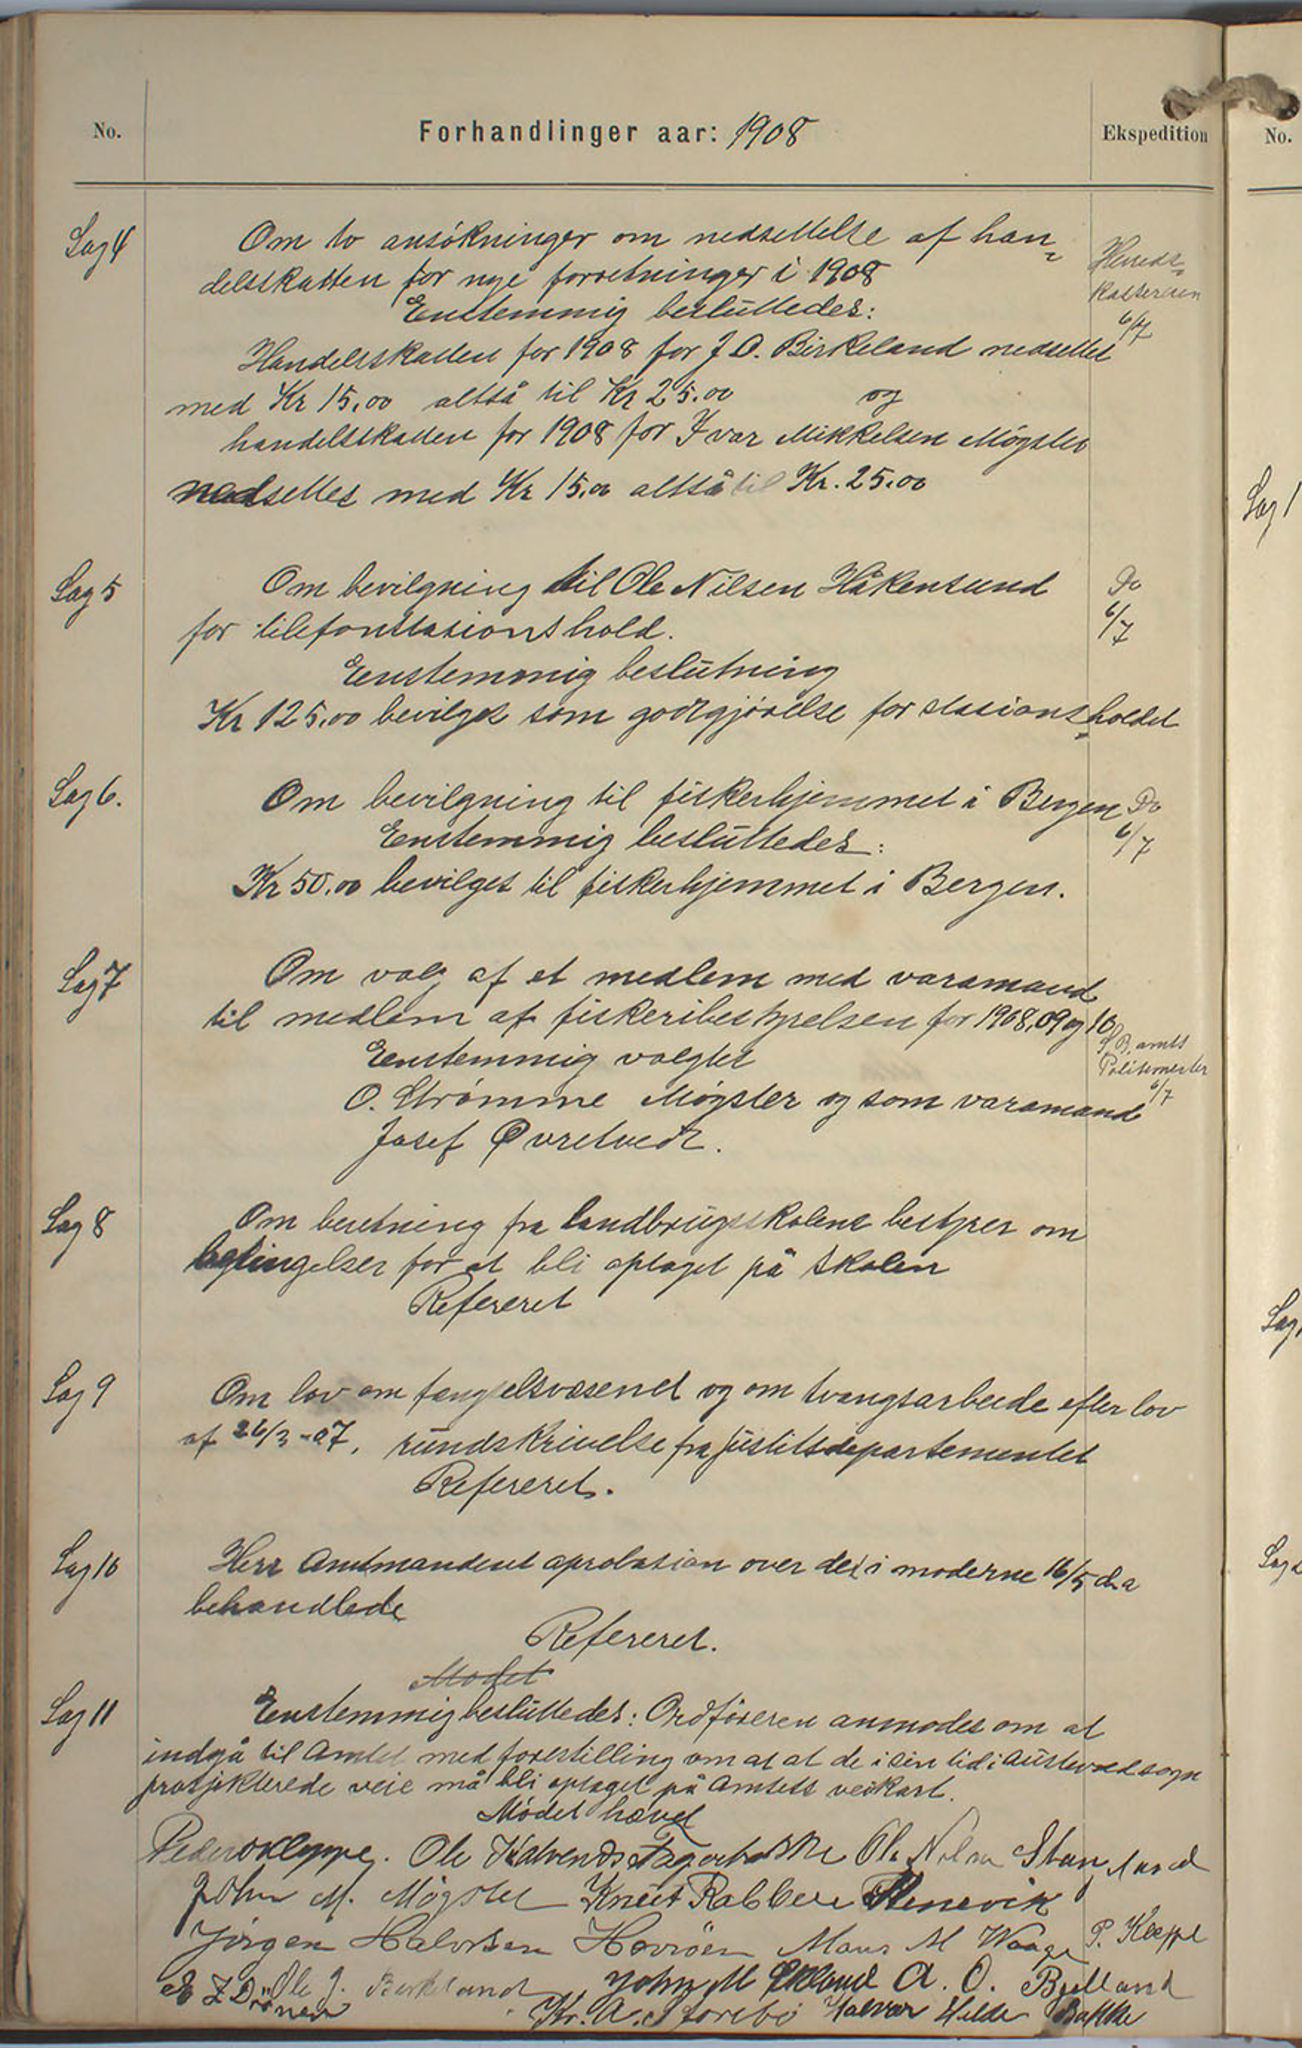 No.
Forhandlinger aar: 1908
Ekspedition
No.
Sag 4
Om to ansökninger om nedsettelse af han=
delsskatten for nye forretninger i 1908
Enstemmig besluttedes:
Handelsskatten for 1908 for J. O. Birkeland nedsettes
med Kr 15.00 altså til Kr 25.00 og
handelsskatten for 1908 for Ivar Mikkelsen Møgster
nedsettes med Kr 15.00 altså til Kr. 25.00
Hereds=
kasseren
6/7
Sag 5
Om bevilgning til Ole Nilsen Håkensund
for telefonstasionshold.
Enstemmig beslutning
Kr 125.00 bevilges som godtgjörelse for stasions=holdet
Do
6/7
Sag 6.
Om bevilgning til fiskerhjemmet i Bergen
Enstemmig besluttedes:
Kr 50.00 bevilges til fiskerhjemmet i Bergen.
Do
6/7
Sag 7
Om valg af et medlem med varamand
til medlem af fiskeribestyrelsen for 1908, 09 og 10
Enstemmig valgtes
O. Strömme Møgster og som varamand
Josef Øvretvedt.
S. B. amts
Politimester
6/7
Sag 8
Om beretning fra landbrugsskolens bestyrer om
betingelser for at bli optaget på skolen
Refereret
Sag 9
Om lov om fængselsvæsenet og om tvangsarbeide efter lov
af 26/3-07, rundskrivelse fra Justitsdepartementet
Refereret.
Sag 10
Herr Amtmandens aprobasion over de i møderne 16/5 d.a
behandlede
Refereret.
Mødet
Sag 11
Enstemmig besluttedes: Ordföreren anmodes om at
indgå til Amtet med forestilling om at at de i sin tid i Austevoll sogn
prosjekterede veie må bli optaget på Amtets veikart.
Mödet hævet
Peder Kleppe. Ole Kalvenes Ole Nilsen
John M. Møgster Knut Rabben Stenevik
Jörgen Halvorsen Hevröen Mons M Waage P. Kleppe
Z Drönen Ole J. Birkeland John M Ekland A. O. Bjelland
Kr. A. Storebö Halvor Helde Bakke
Sag 1
Sag
Sag